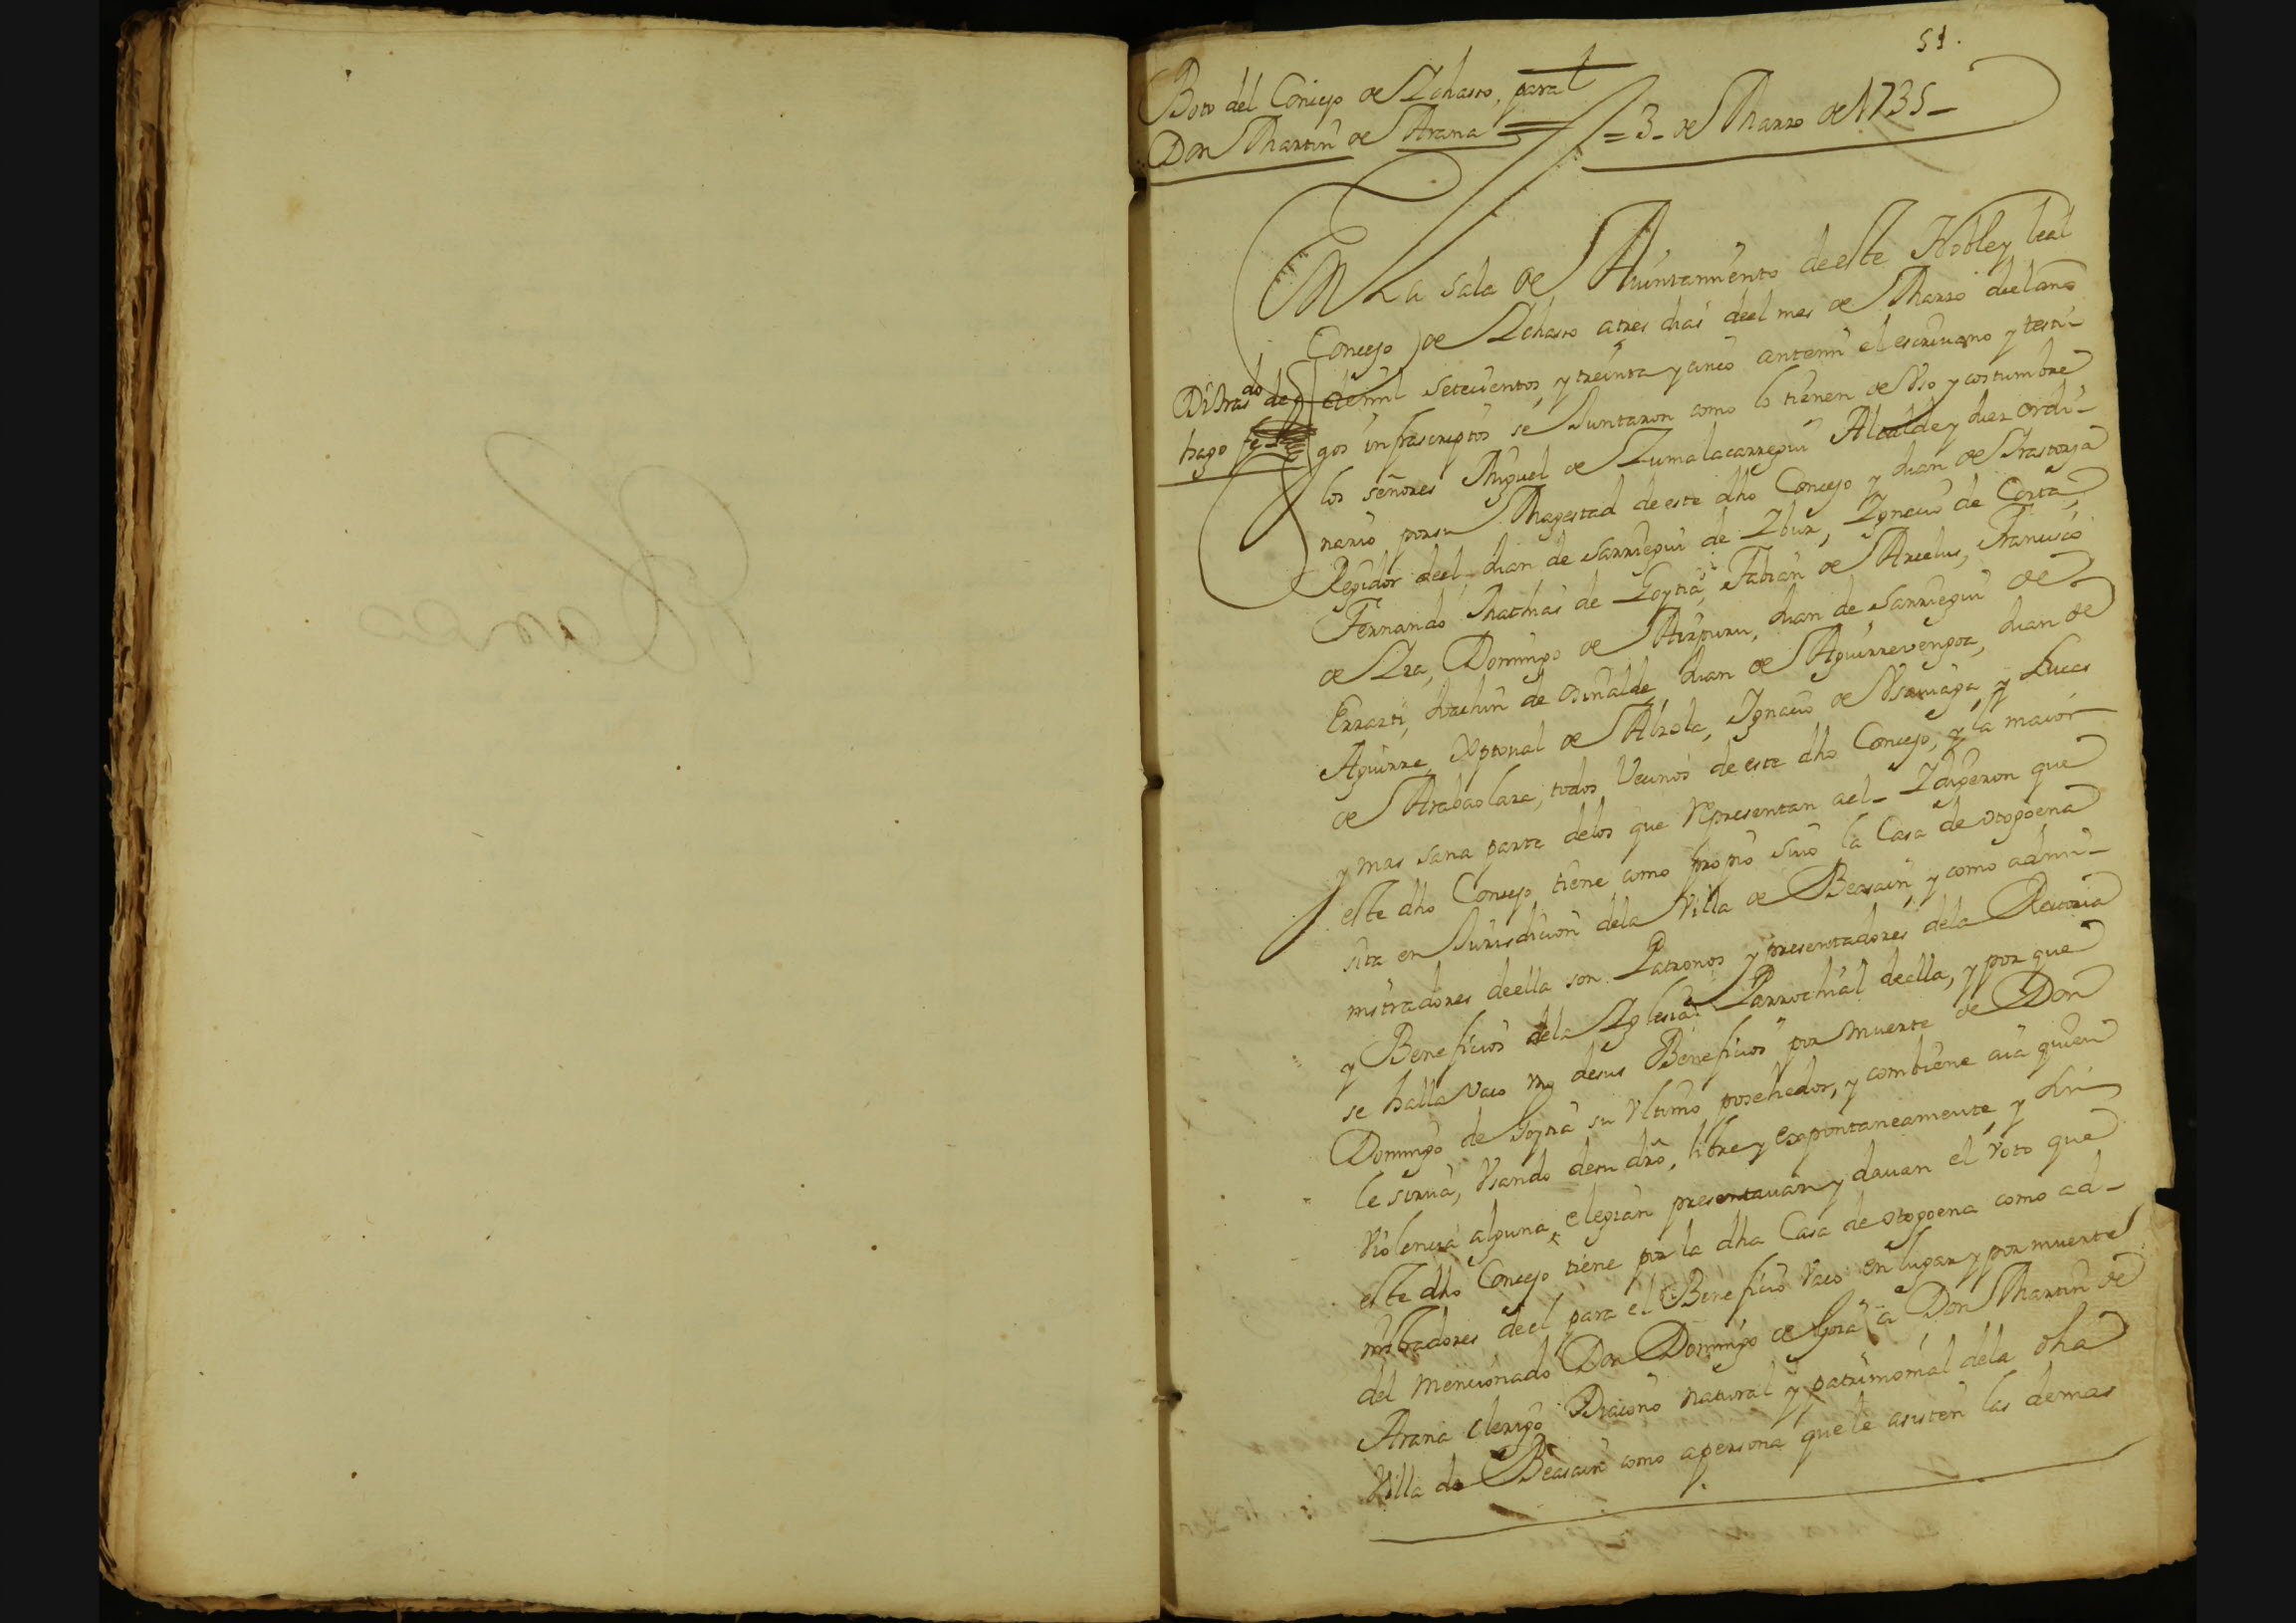 51.
Boto del Concejo de Ychasso, para
Don Martin de Arana = 3 - de Marzo de 1735 -
En La sala de Aiuntamiento de este Noble y leal
Concejo de Ychasso a tres dias deel mes de Marzo deel ano
demil setecientos, y treinta y cinco antemi el escriuano y testi-
gos infrascriptos se Juntaron como lo tienen de Vso y costumbre
los señores Miguel de Zumalacarregui Alcalde y Juez ordi-
nario por su Magestad de este dho Concejo y Juan de
Regidor deel, Juan de Sarriegui de Ybur, Ygnacio de Corta,
Fernando Mathias de Goytia, Fabian de Arcelus, Francisco
de Yza, Domingo de Aizpuru, Juan de Sarriegui de
Errazti, Joachin de Osinalde, Juan de Aguirrevengoa, Juan de
Aguirre, Xptoual de Alzola, Ygnacio de Vsuriaga, y Lucas
de Arabaolaza, todos Vecinos de este dho Concejo, y la maior
y mas sana parte delos que Representan ael - Y digeron que
este dho Concejo tiene como propio suio la Casa de otogoena
sita en Jurisdicion dela Villa de Beasain, y como admi-
nistradores deella son Patronos y presentadores dela Retoria
y Beneficios dela Yglesia Parrochial deella, y por que
se halla Vaco uno desus Beneficios por muerte de Don
Domingo de Goytia su Vltimo posehedor, y combiene aia quien
le sirua, Vsando desu dro, libre y expontaneamente, y sin
Violencia alguna, elegian presentauan y dauan el Voto que
este dho Concejo tiene por la dha Casa de otogoena como ad-
mistradores deel para el Beneficio Vaco en lugar y por muerte
del mencionado Don Domingo de Goytia a Don Martin de
Arana Clerigo Diacono natural y patrimonial dela dha
Villa de Beasain como apersona que le asisten las demas